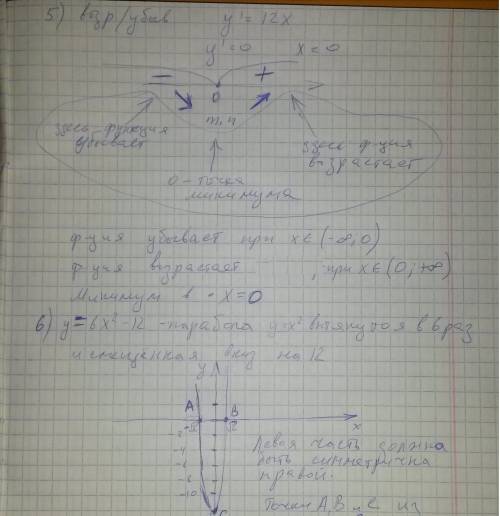 5) возр/убыв y' = 12x
y' = 0 x = 0
− +
0
min
здесь функция убывает
здесь ф-ция возрастает
0 - точка минимума
ф-ция убывает при x∈(-∞,0)
ф-ция возрастает, при x∈(0;+∞)
Минимум в x=0
6) y = 6x² - 12 - парабола y=x² вытянутая в 6 раз
и смещенная вниз на 12
y
A B
-√2 √2 x
-2
-4
-6
-8
-10
C
Левая часть должна
быть симметрична
правой.
Точки A, B и C из